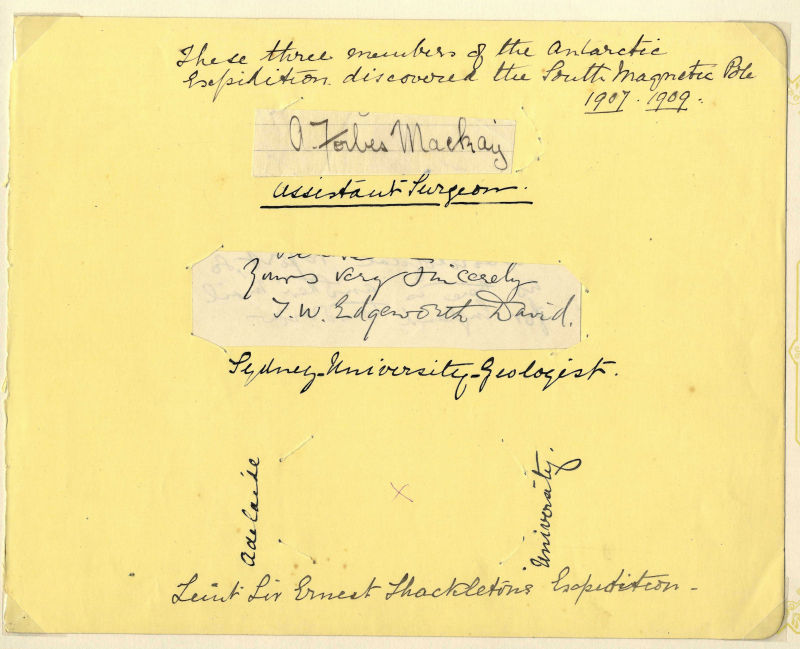 These three members of the Antarctic
Expidition discovered the South Magnetic Pole
1907. 1909.
A. Forbes Mackay
Assistant Surgeon.
Yours very sincerely
T.W. Edgeworth David.
Sydney-University-Geologist.
Adelaide
University.
Leiut Sir Ernest Shackletons Expedition -